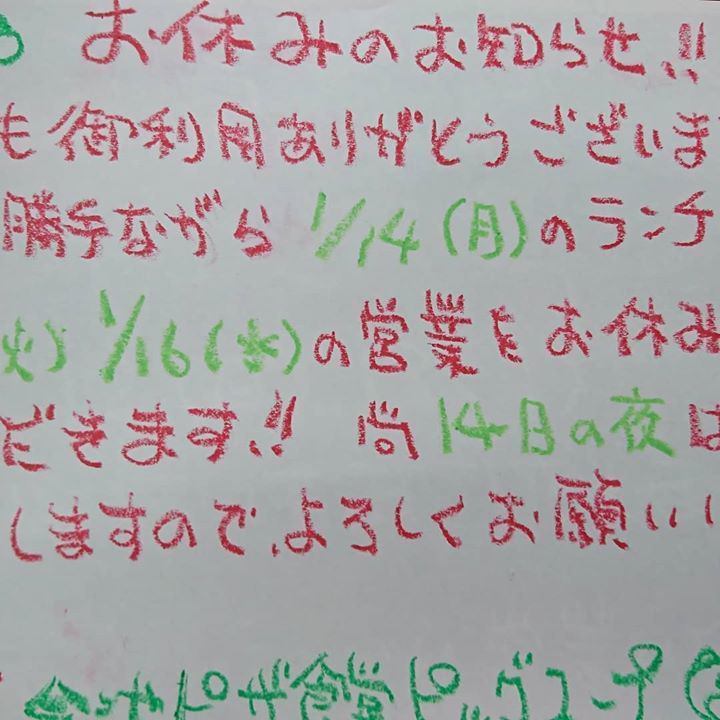 お休みのお知らせ!!
も御利用ありがとうございま
勝手ながら 1/14(月)のランチ
火) 1/16(水)の営業をお休み
だきます!! 尚 14日の夜は
しますので、よろしくお願いし
ピザ食堂ビッグスープ